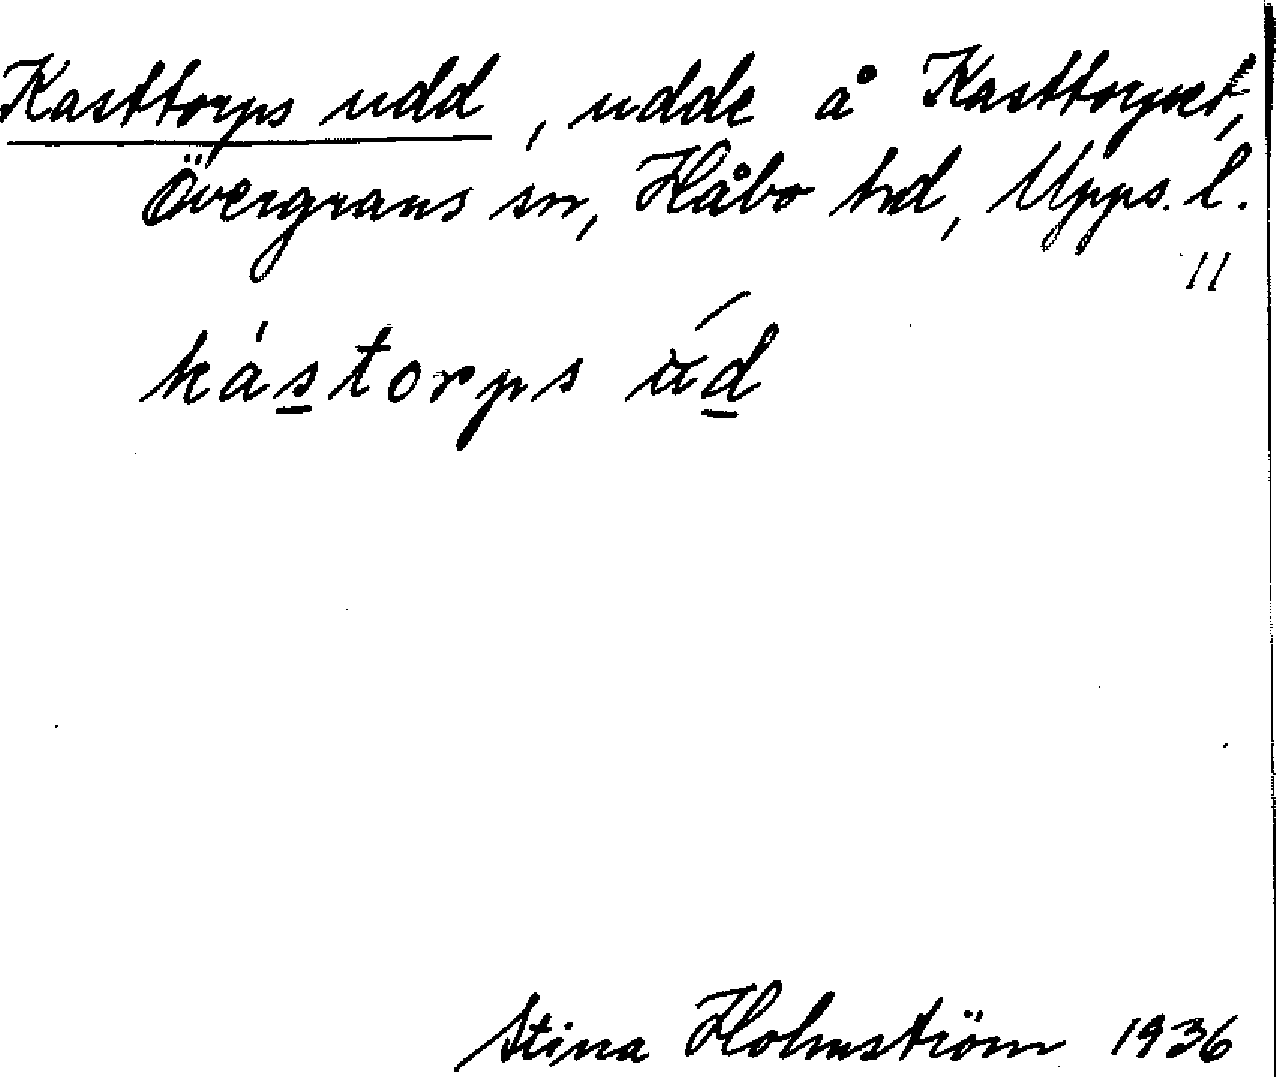 Kasttorps udd, udde å Kasttorpet,
Övergrans sn, Håbo hd, Upps. l.
11
kástorps úd
Stina Holmström 1936